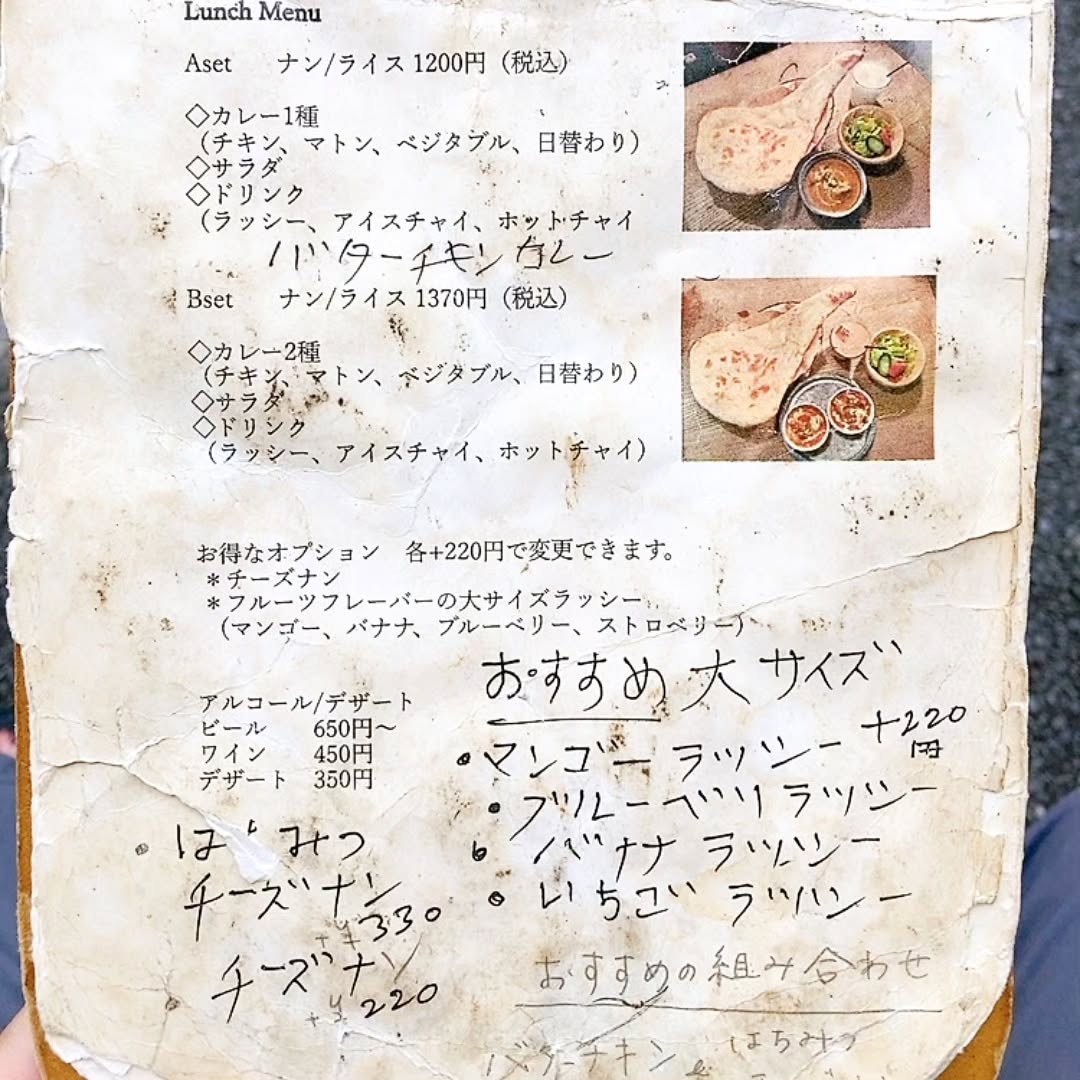 Lunch Menu
Aset ナン/ライス 1200円（税込）
◇カレー1種
（チキン、マトン、ベジタブル、日替わり）
◇サラダ
◇ドリンク
（ラッシー、アイスチャイ、ホットチャイ
バターチキンカレー
Bset ナン/ライス 1370円（税込）
◇カレー2種
（チキン、マトン、ベジタブル、日替わり）
◇サラダ
◇ドリンク
（ラッシー、アイスチャイ、ホットチャイ）
お得なオプション 各+220円で変更できます。
＊チーズナン
＊フルーツフレーバーの大サイズラッシー
（マンゴー、バナナ、ブルーベリー、ストロベリー）
アルコール/デザート
ビール 650円～
ワイン 450円
デザート 350円
おすすめ 大サイズ
+220円
・マンゴー ラッシー
・ブルーベリ ラッシー
・バナナ ラッシー
・いちご ラッシー
・はちみつ
チーズナン
+¥330
チーズナン
+¥220
おすすめの組み合わせ
バターチキン
はちみつ